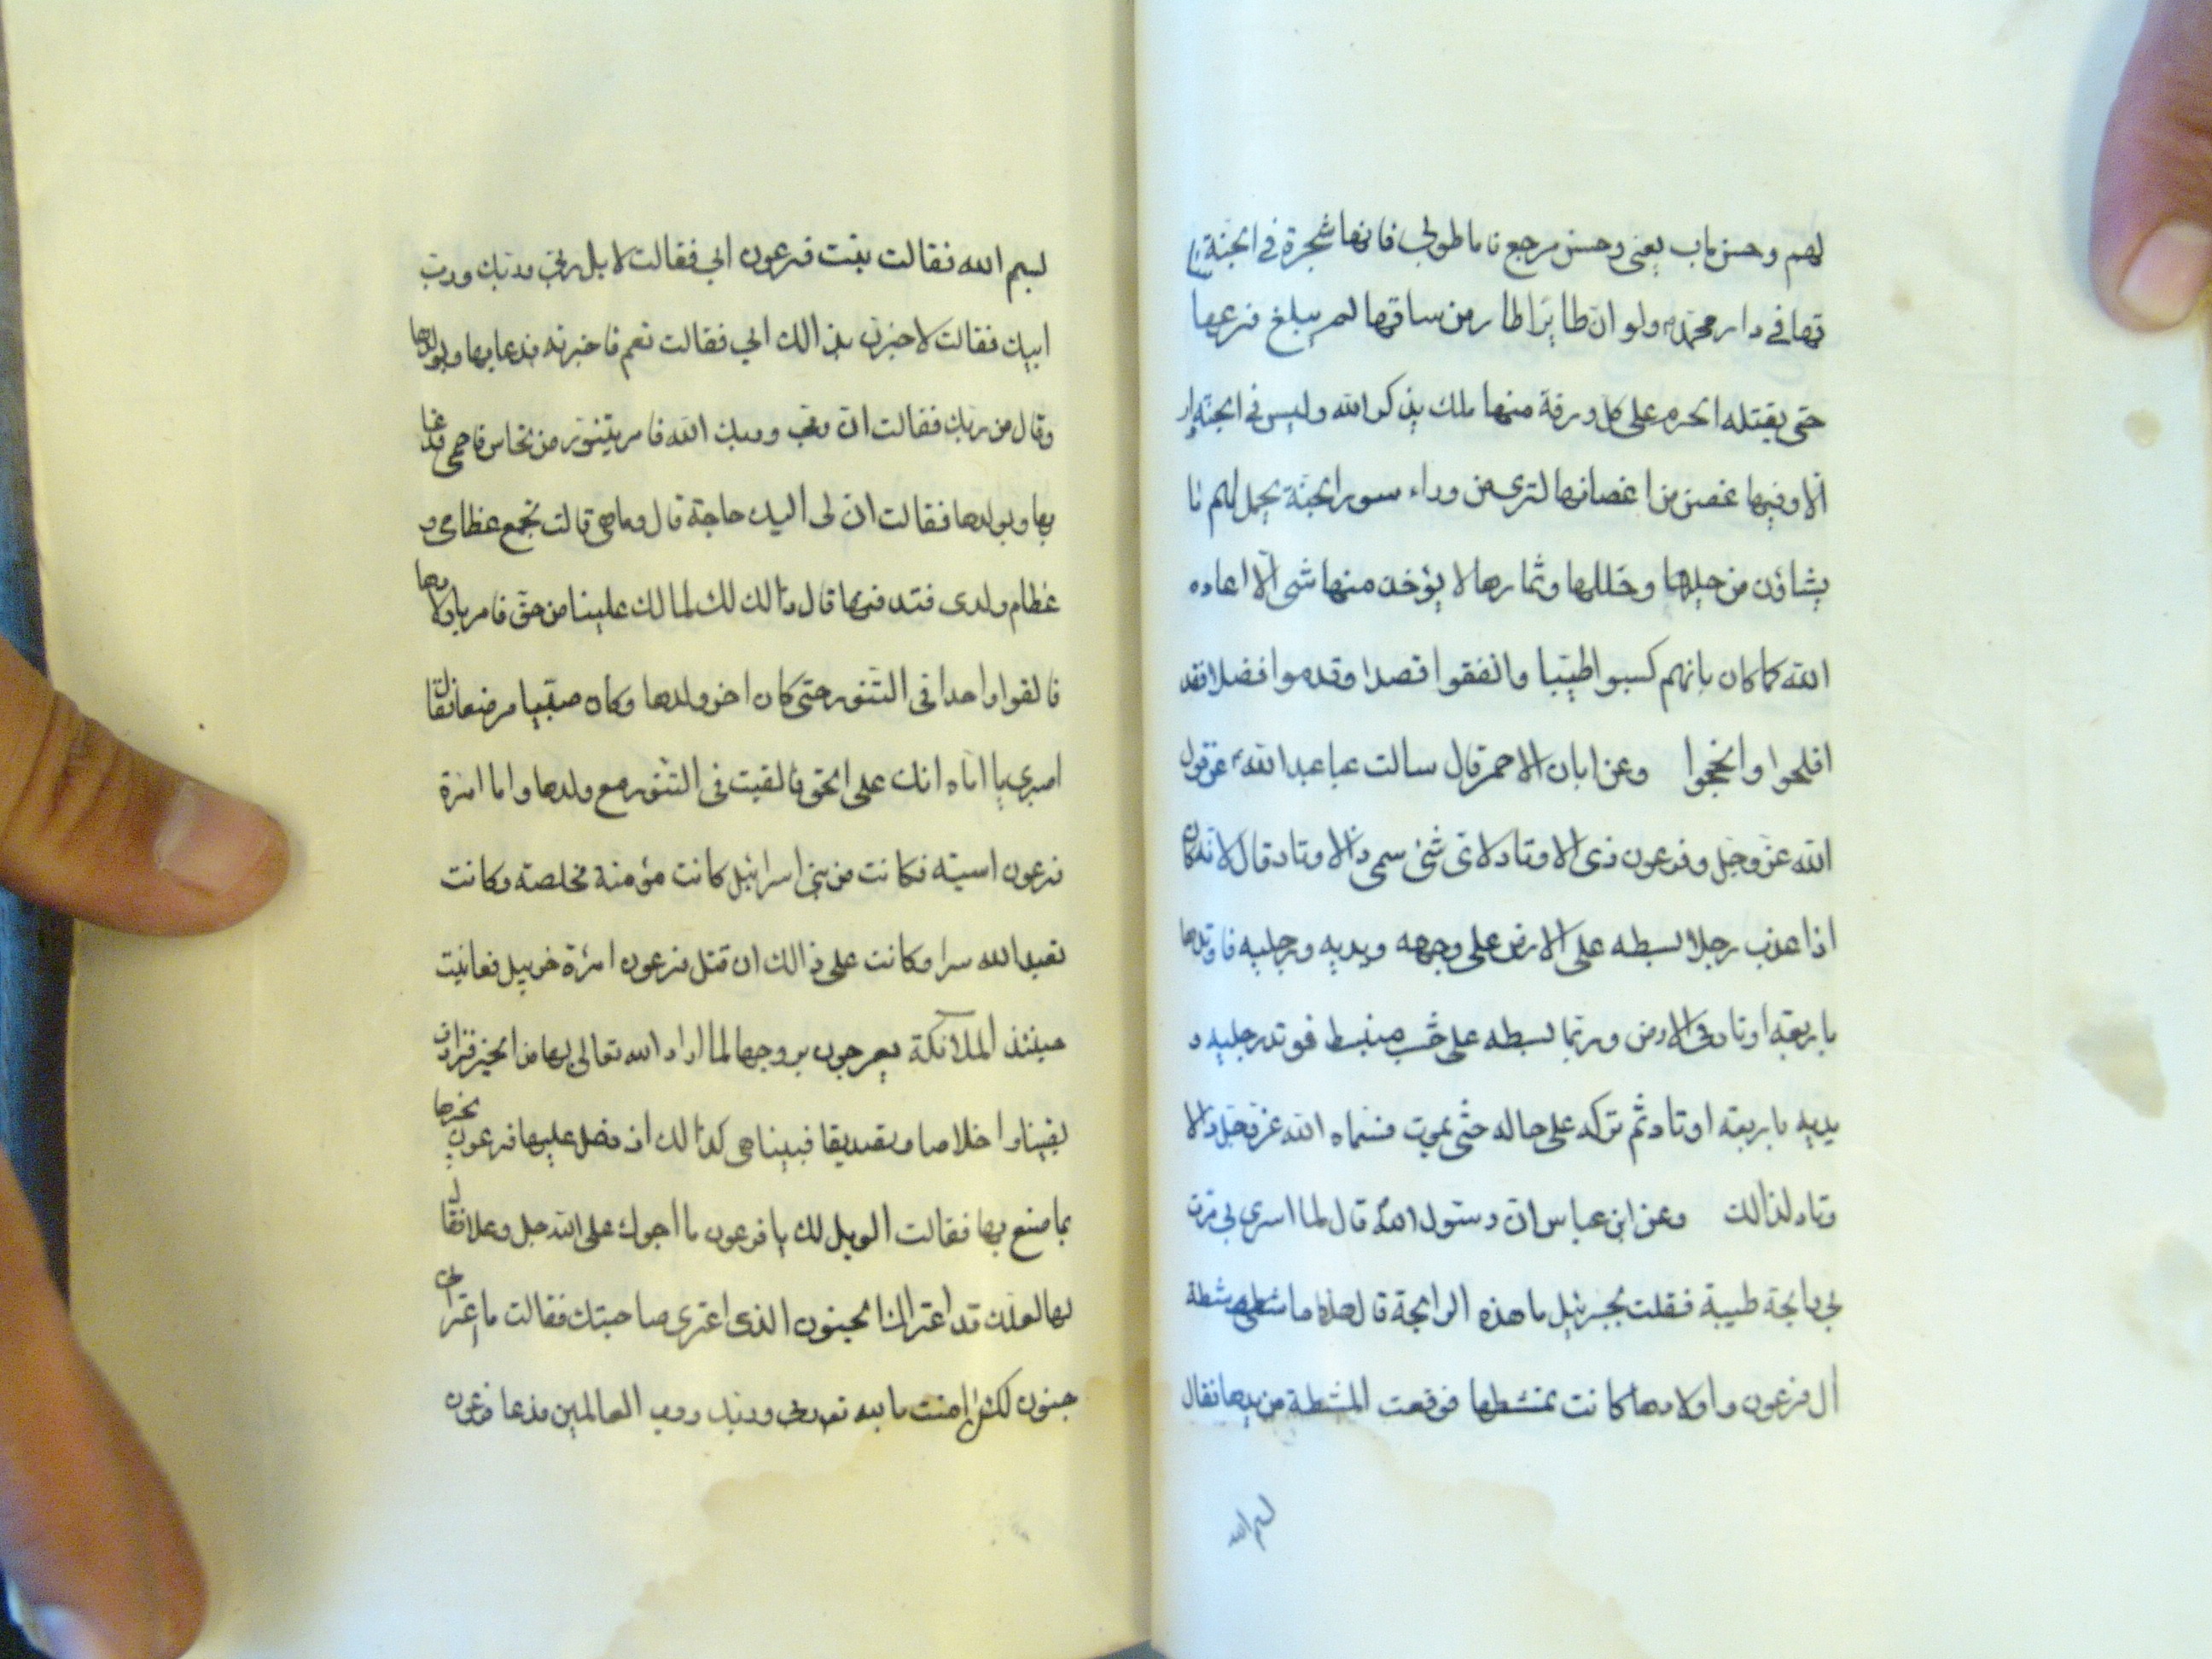 لهم وحسن ماب يعنى وحسن مرجع فاما طوبى فانها شجرة فى الجنة
قها فى دار محمد ولو ان طايرا طار من ساقها لم يبلغ فرعها
حتى يقتله الحرم على كل ورقة منها ملك يذكر الله وليس فى الجنة دار
الا وفيها غصن من اغصانها لترى من وراء سور الجنة يحمل لهم ما
يشاؤن من حليها وحللها وثمارها لا يؤخذ منها شى الا اعاده
الله كما كان بانهم كسبوا طيبا وانفقوا قصدا وقدموا فضلا فقد
افلحوا وانجحوا وعن ابان الاحمر قال سالت عبا عبد الله عن قول
الله عز وجل وفرعون ذى الاوتاد لاى شئ سمى ذا الاوتاد قال لانه كان
اذا عذب رجلا بسطه على الارض على وجهه ويديه ورجليه فاوتدها
باربعة اوتاد فى الارض وربما بسطه على خشب منبسط فوتد رجليه و
يديه باربعة اوتاد ثم تركه على حاله حتى يموت فسماه الله عز وجل ذا الا
وتاد لذالك وعن ابن عباس ان رسول الله قال لما اسرى بى مرت
بى رايحة طيبة فقلت لجبرئيل ما هذه الرايحة قال هذه ماشطة
ال فرعون واولادها كانت تمشطها فوقعت المشطة من يدها فقال
بسم الله
بسم الله فقالت بنت فرعون ابى فقالت لا بل ربى وربك ورب
ابيك فقالت لاخبرن بذالك ابى فقالت نعم فاخبرته فدعا بها وبولدها
وقال من ربك فقالت ان ربى وربك الله فامر بتنور من نحاس فاحمى فدعا
بها وبولدها فقالت ان لى اليك حاجة قال وما هى قالت تجمع عظامى و
عظام ولدى فتدفنها قال ذالك لك لما لك علينا من حق فامر باولادها
فالقوا واحدا فى التنور حتى كان اخر ولدها وكان صبيا مرضعا فقال
اصبرى يا اماه انك على الحق فالقيت فى التنور مع ولدها واما امرة
فرعون اسية فكانت من بنى اسرائيل كانت مؤمنة مخلصة وكانت
تعبد الله سرا وكانت على ذالك ان قتل فرعون امرئة خربيل فعاينت
حينئذ الملائكة يعرجون بروحها لما اراد الله تعالى بها من الخير فزادت
يقينا واخلاصا وتصديقا فبينا هى كذالك اذ دخل عليها فرعون يخبرها
بما صنع بها فقالت الويل لك يا فرعون ما اجرك على الله جل وعلا فقال
لها لعلك قد اعتراك الجنون الذى اعترى صاحبتك فقالت ما اعترانى
جنون لكن امنت بالله تعالى ربى وربك ورب العالمين فدعا فرعون